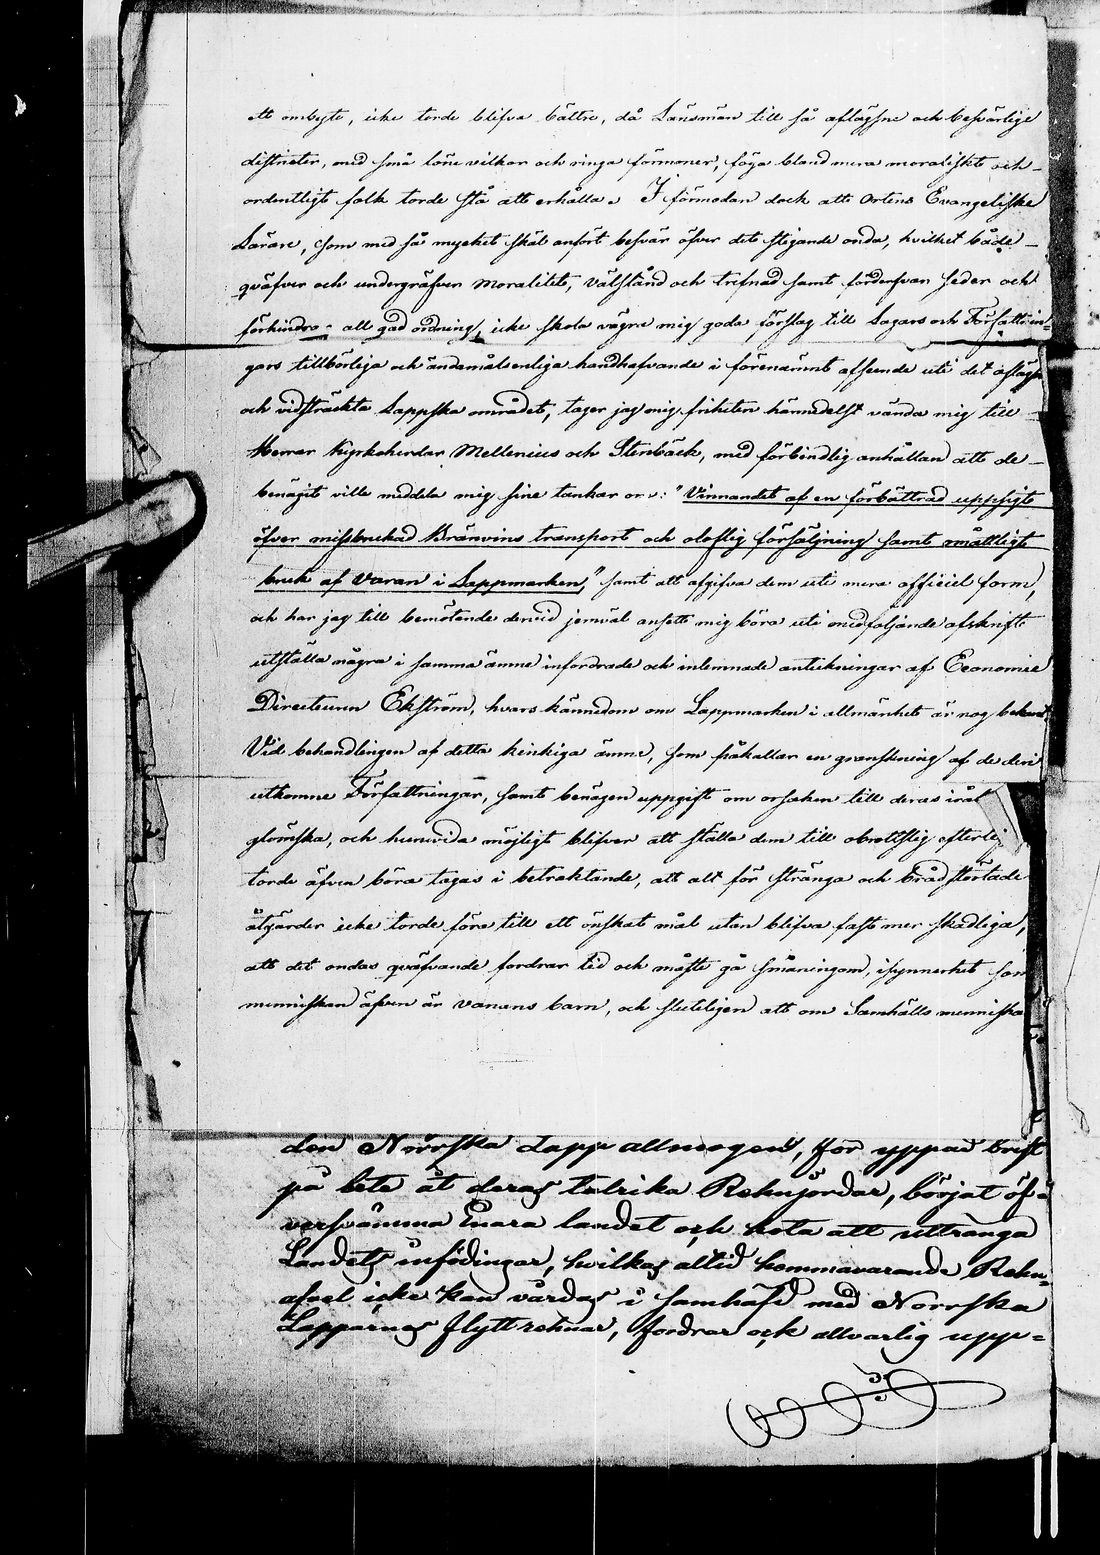 ett ombyte, icke torde blifva bättre, då Länsmän till så aflägsne och besvärlige
districter, med små löne vilkor och ringa förmoner, föga bland mera moraliskt och
ordentligt folk torde stå att erhålla. I förmodan dock att Ortens Evangeliske
Lärare, som med så mycket skäl anfört besvär öfver det stigande onda, hvilket både
qväfver och undergräfver moralitet, välstånd och trefnad samt förderfvar seder och
förhindrar all god ordning, icke skola vägra mig goda förslag till Lagars och Författnin-
gars tillbörliga och ändamålsenliga handhafvande i förenämnt afseende uti det aflägs
och vidsträckta Lappska området, tager jag mig friheten härmedelst vända mig till
Herrar Kyrkoherdar Mellenius och Stenbäck, med förbindlig anhållan att de
benägit ville meddela mig sine tankar om: "Vinnandet af en förbättrad uppsigt
öfver missbrukad Bränvins transport och oloflig försäljning samt omåttligt
bruk af varan i Lappmarken," samt att afgifva dem uti mera officiel form,
och har jag till bemötande dervid jemväl ansett mig böra uti medföljande afskrift
utställa några i samma ämne infordrade och inlemnade anteckningar af Economie
Directeuren Ekström, hvars kännedom om Lappmarken i allmänhet är nog bekant
Vid behandlingen af detta kinkiga ämne, som påkallar en granskning af de deri
utkomne Författningar, samt benägen uppgift om orsaken till deras iråk
glömska, och huruvida möjligt blifver att ställa dem till obrottslig efterle
torde äfven böra tagas i betraktande, att alt för stränga och brådstörtade
åtgärder icke torde föra till ett önskat mål utan blifva fast mer skadliga,
att det ondas qväfvande fordrar tid och måste gå småningom, isynnerhet som
menniskan äfven är vanans barn, och sluteligen att om Samhälls menniska
den Norrska Lapp allmogen, för yppad brist
på bete åt deras talrika Rehnjordar, börjat öf-
versvämma Enara landet och hota att utränga
Landets infödingar, hvilkas altid hemmavarande Rehn-
afvel icke kan vårdas i samhäfd med Norrska
Lapparnas flyttrehnar, fordrar ock allvarlig upp-